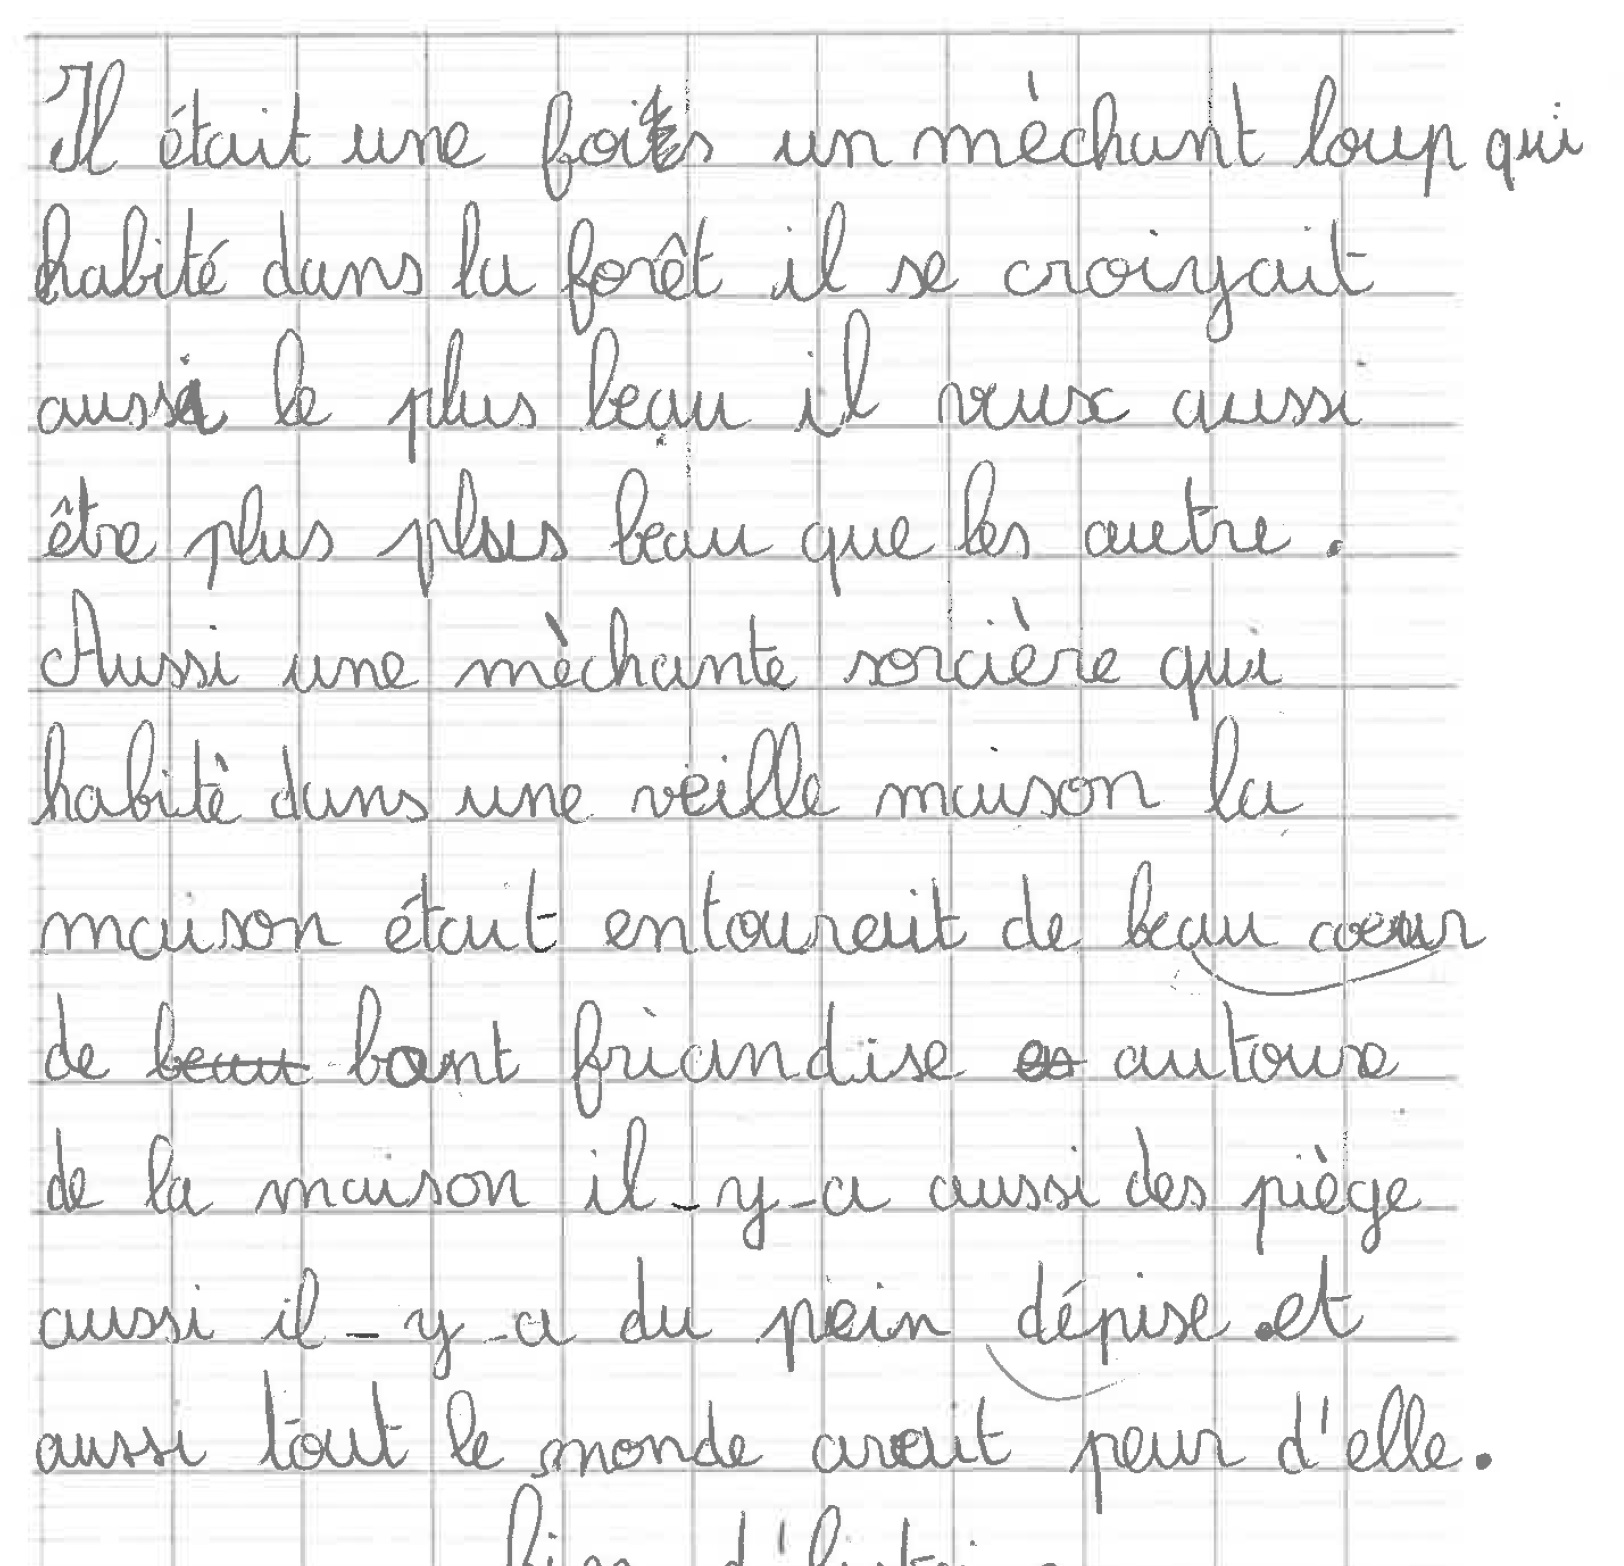 Il était une fois un mèchant loup qui
habité dans la forêt il se croiyait
aussi le plus beau il veux aussi
être plus plus beau que les autre.
Aussi une mèchante sorcière qui
habitè dans une veille maison la
maison était entourait de beau coeur
de beau bont friandise es autoure
de la maison il-y-a aussi des piège
aussi il-y-a du pein dépise.et
aussi tout le monde avait peur d'elle.